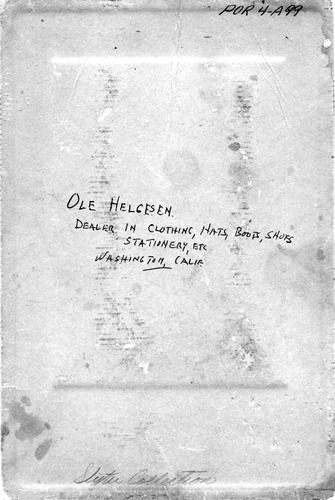 POR 4-A99
OLE HELGESEN.
DEALER IN CLOTHING, HATS, BOOTS, SHOES
STATIONERY, ETC
WASHINGTON, CALIF.
Collection